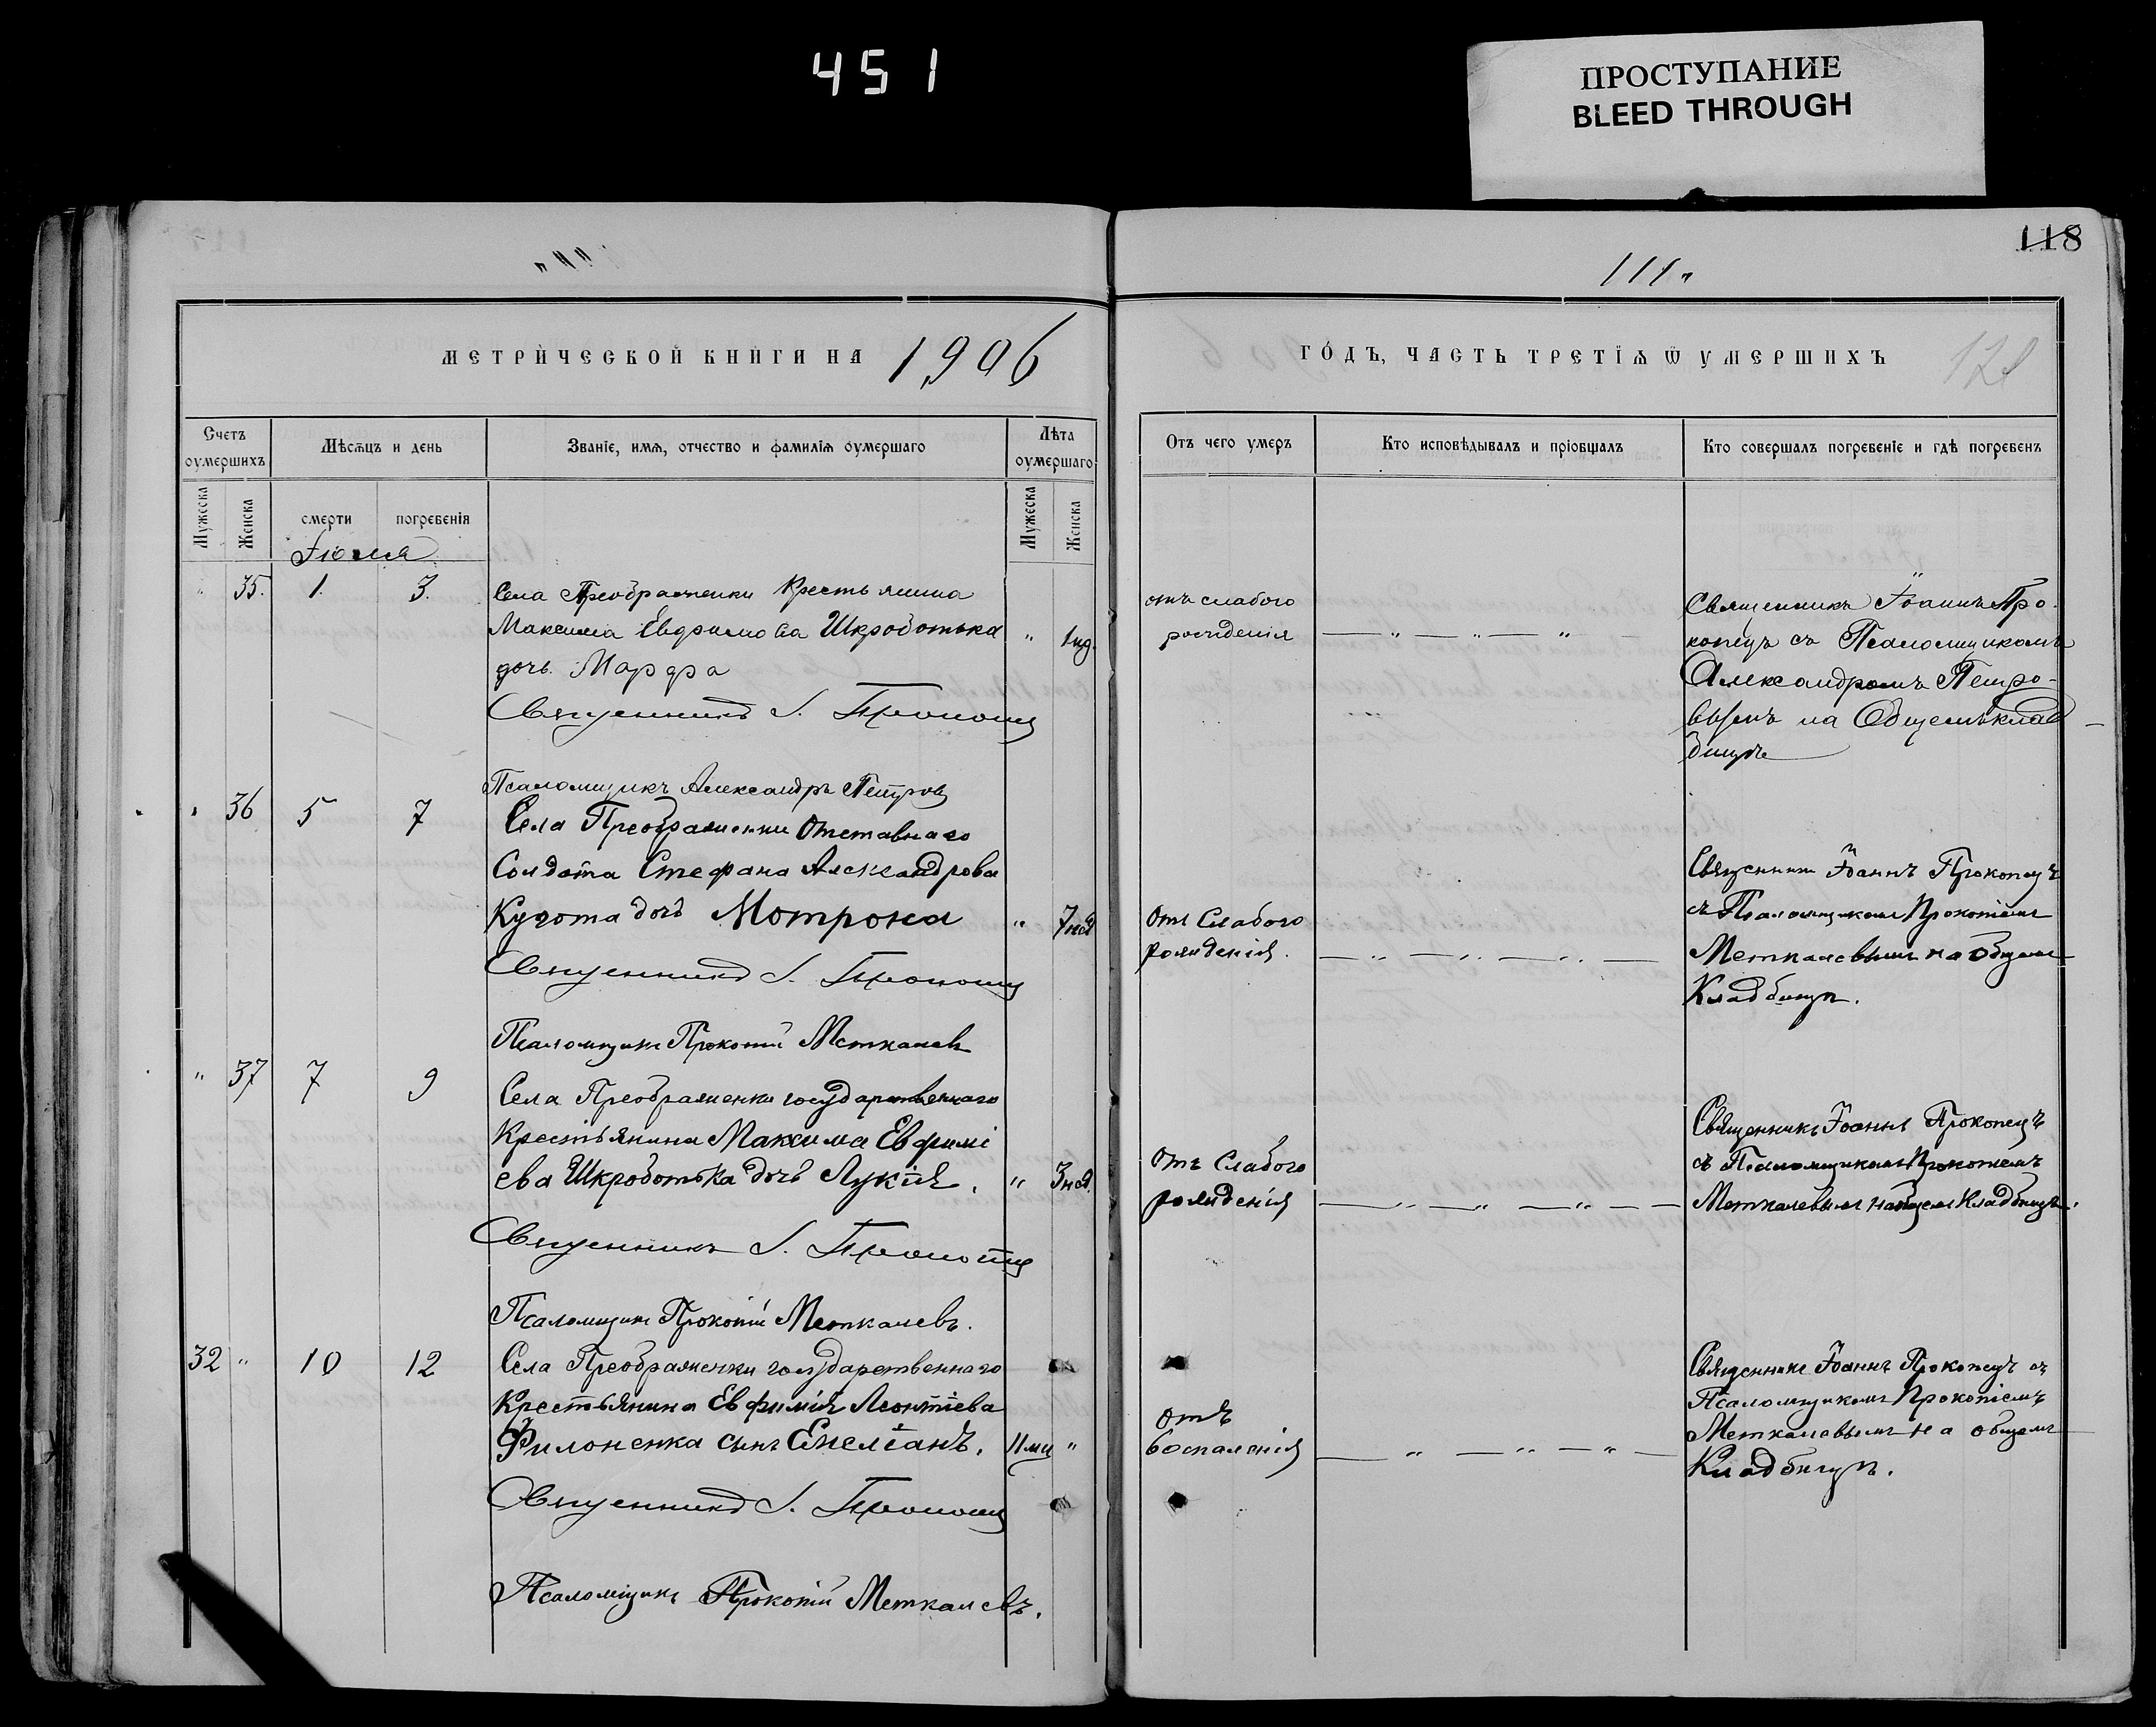 451
ПРОСТУПАНИЕ
BLEED THROUGH
118
111"
МЕТРИЧЕСКОЙ КНИГИ НА 1906
ГОДЪ, ЧАСТЬ ТРЕТІѦ Ѿ УМЕРШИХЪ
128
Счетъ оумершихъ
Мѣсѧцъ и день
Званіе, имѧ, отчество и фамиліѧ оумершаго
Лѣта оумершаго
Отъ чего умеръ
Кто исповѣдывалъ и пріобщалъ
Кто совершалъ погребеніе и гдѣ погребенъ
Мужеска
Женска
смерти
погребенія
Мужеска
Женска
" 35. 1. 3.
Села Преображенки Крестьянина
Максима Евфимова Шкроботька " 1 нд.
дочь Марфа
Священникъ І. Прокопец
Псаломщикъ Александръ Петров
отъ слабого
рождения
Священникъ Іоаннъ Про-
копецъ съ Псаломщикомъ
Александромъ Петро-
вымъ на Общемъ клад
бищѣ
" 36 5 7
Села Преображенки Отставнаго
Солдата Стефана Александрова
дочь Мотрона " 7 нд
Священникъ І. Прокопец
Псаломщикъ Прокопій Меткалевъ
Отъ Слабого
рожденія.
Священникъ Іоаннъ Прокопецъ
съ Псаломщикомъ Прокопіемъ
Меткалевымъ на общемъ
Кладбищѣ.
" 37 7 9
Села Преображенки государственнаго
Крестьянина Максима Евфимі
ева Шкроботька дочь Лукія. " 3 нд.
Священникъ І. Прокопец
Псаломщикъ Прокопій Меткалевъ.
Отъ Слабого
рожденія
Священникъ Іоаннъ Прокопецъ
съ Псаломщикомъ Прокопіемъ
Меткалевымъ на общем Кладбищѣ.
32 " 10 12
Села Преображенки государственнаго
Крестьянина Евфимія Леонтіева
Филоненка сынъ Емеліанъ. 11 мц "
Священникъ І. Прокопец
Псаломщикъ Прокопій Меткалевъ.
отъ
воспаленія
Священникъ Іоаннъ Прокопецъ съ
Псаломщикомъ Прокопіемъ
Меткалевымъ на общемъ
Кладбищѣ.